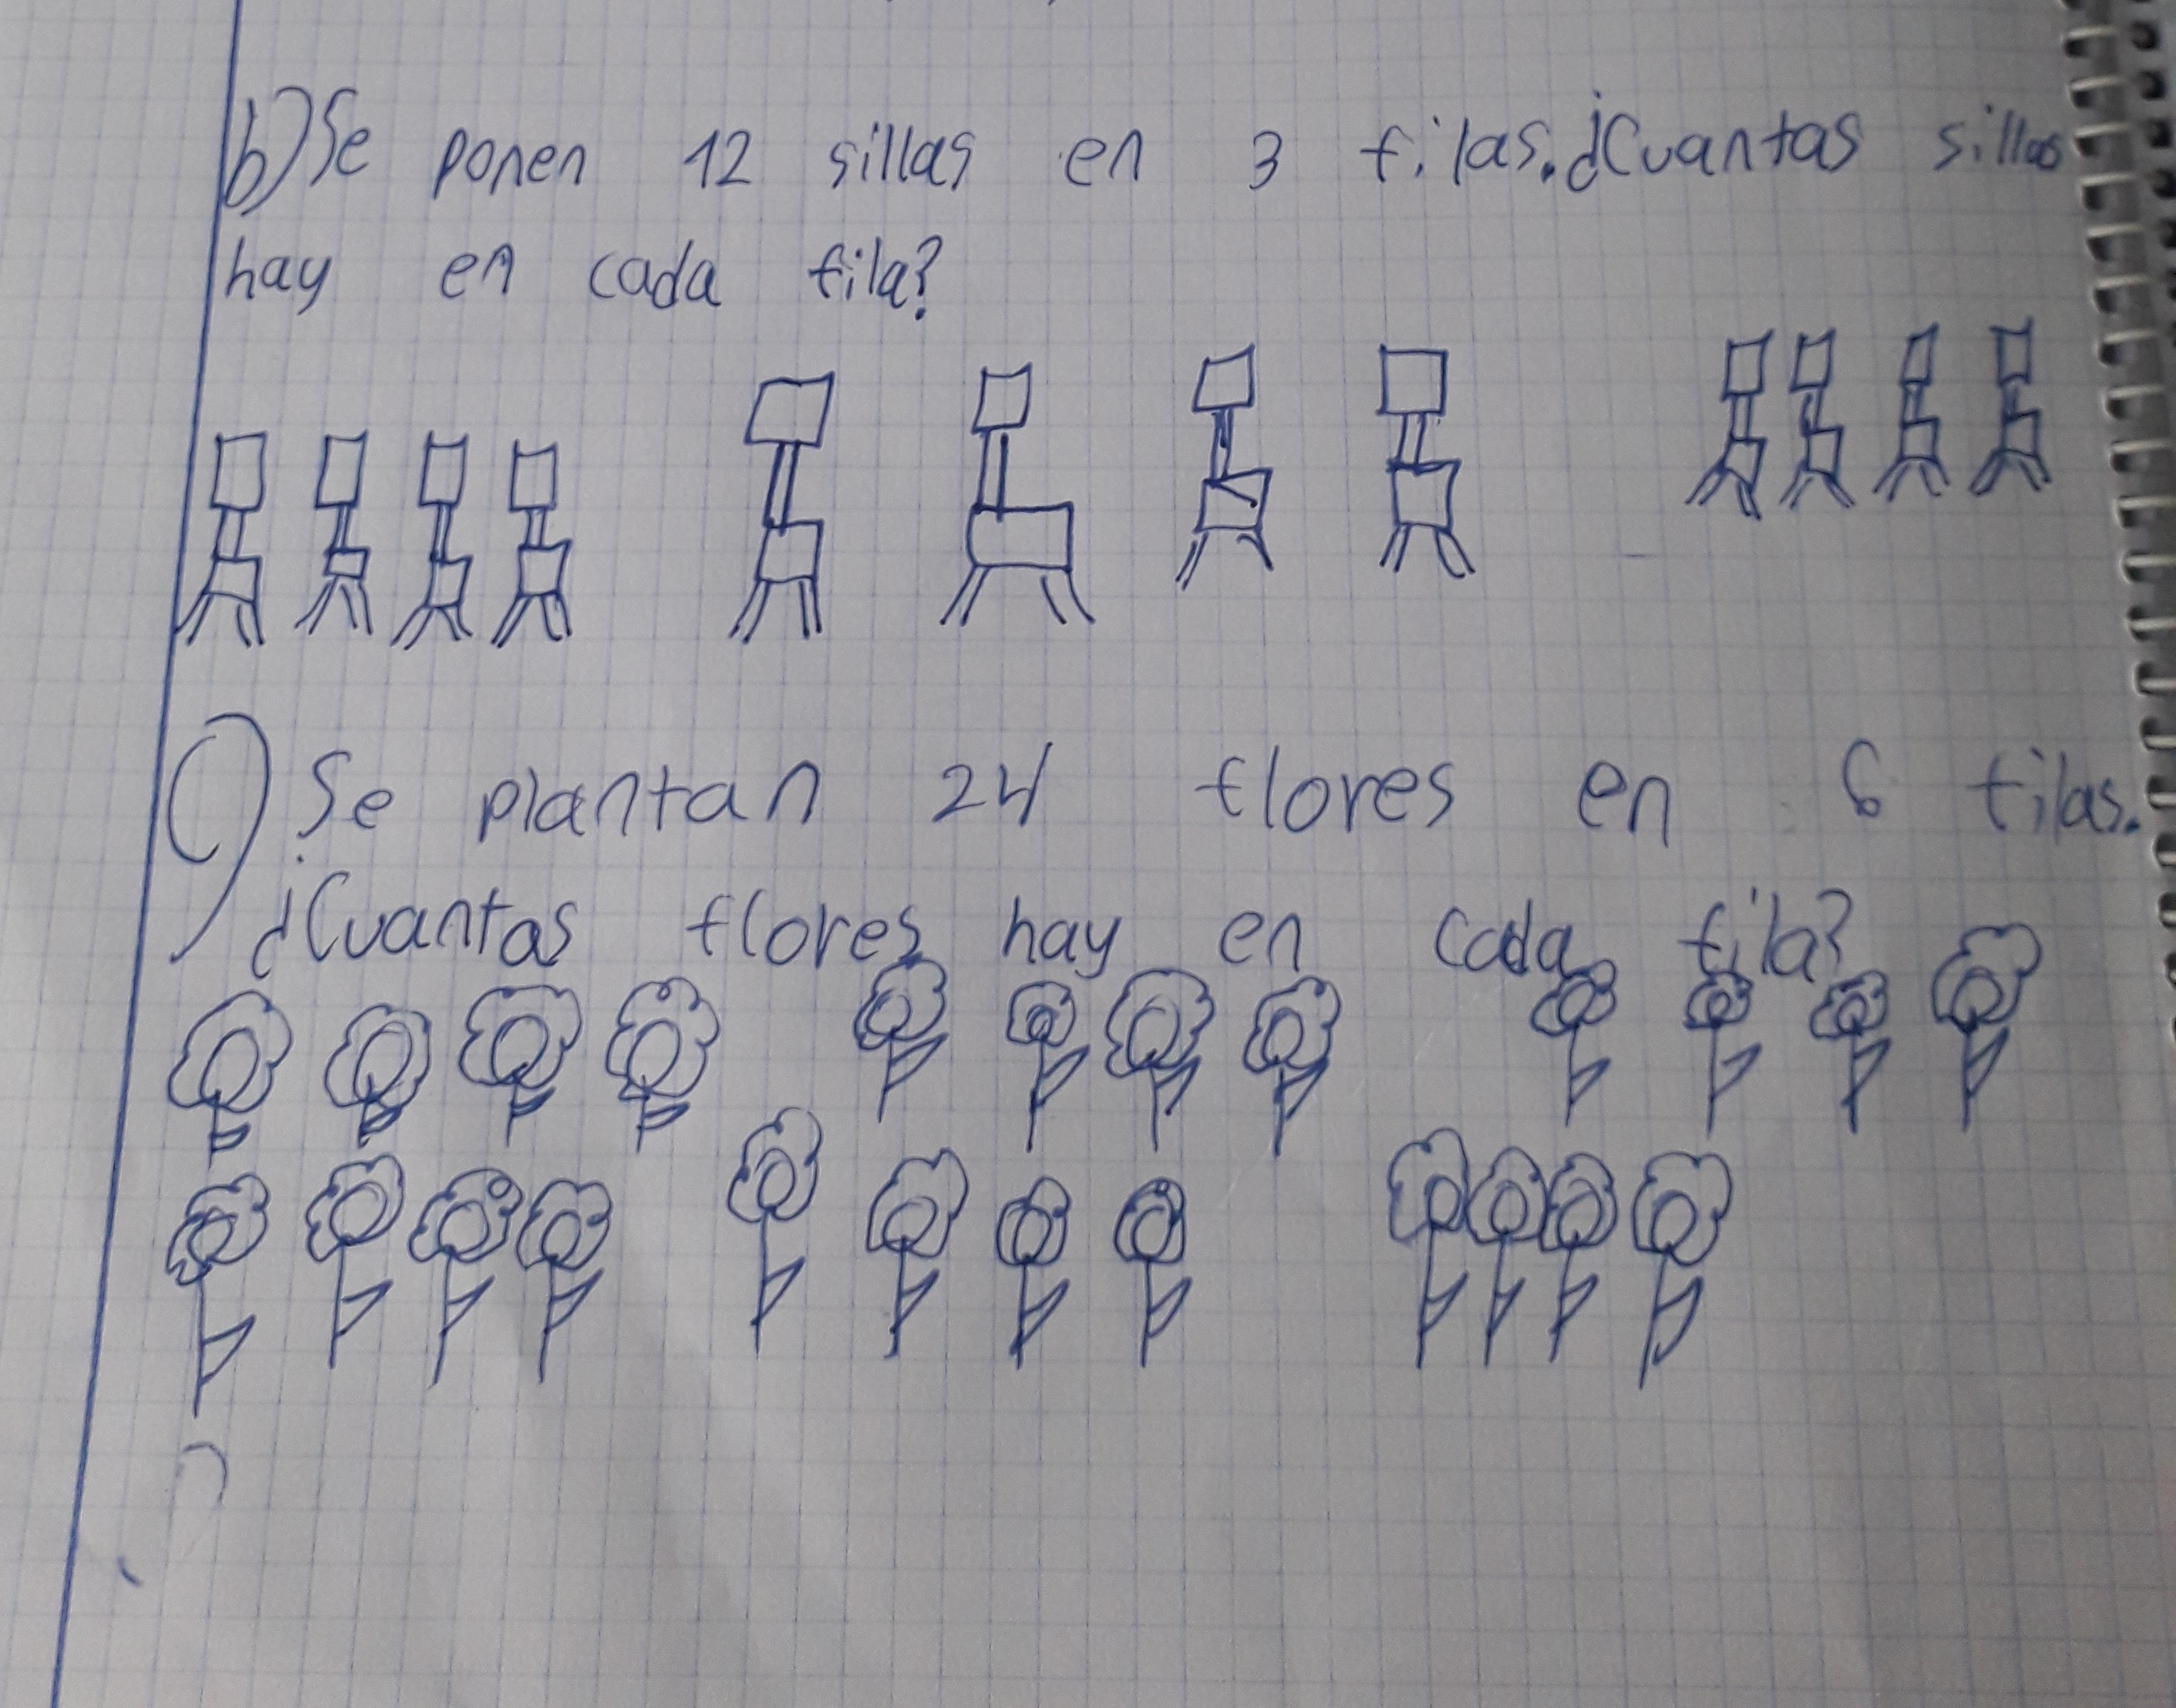 b) Se ponen 12 sillas en 3 filas. ¿Cuantas sillas
hay en cada fila?
c) Se plantan 24 flores en 6 filas.
¿Cuantas flores hay en cada fila?